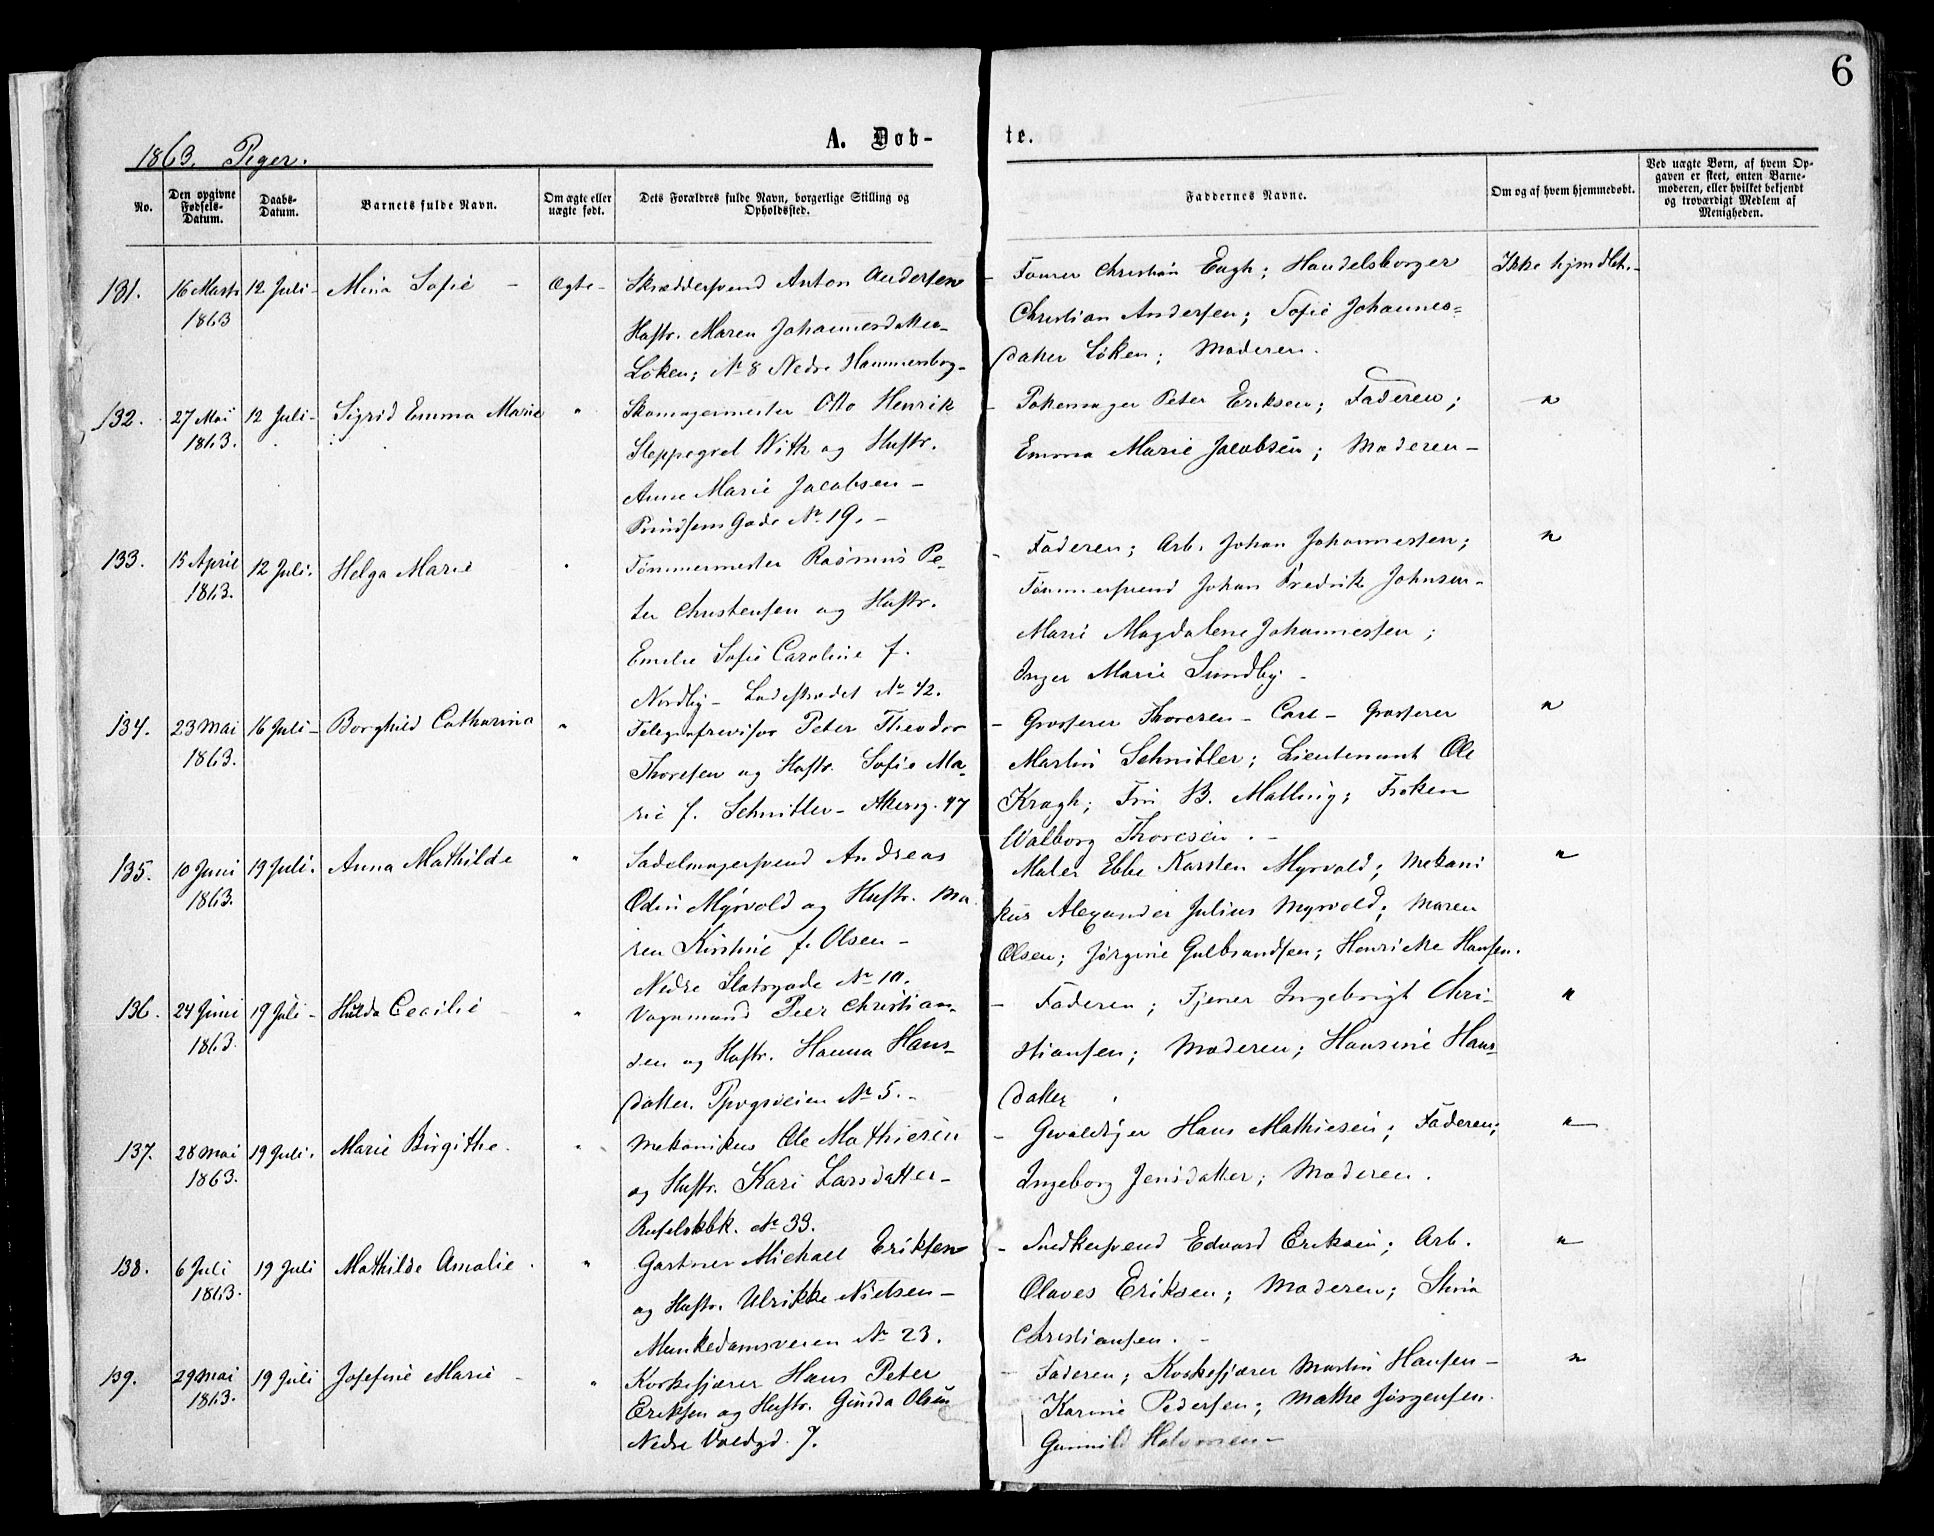 6
A. Døb-
te.
1863. Piger.
No.
Den opgivne Fødsels-Datum.
Daabs-Datum.
Barnets fulde Navn.
Om ægte eller uægte født.
Dets Forældres fulde Navn, borgerlige Stilling og Opholdssted.
Faddernes Navne.
Om og af hvem hjemmedøbt.
Ved uægte Børn, af hvem Opgaven er skeet, enten Barnemoderen, eller hvilket bekjendt og troværdigt Medlem af Menigheden.
131. 16 Marts 12 Juli - Mina Sofie - Ægte - Skræddersvend Anton Andersen - Christian Engh; Handelsborger Ikke hjmdbt.
1863 Hustr. Maren Johannesdatter Christian Andersen; Sofie Johannes-
Løken; No 8 Nedre Hammersborg - datter Løken; Moderen.
132. 27 Mai 12 Juli - Sigrid Emma Marie " Skomagermester Otto Henrik - Peter Eriksen; Faderen; "
1863. Steppegrel With og Hustr. Emma Marie Jacobsen; Moderen -
Anne Marie Jacobsen -
Prindsens Gade No 19. -
133. 15 April 12 Juli. Helga Marie " Tømmermester Rasmus Pe- - Faderen; Arb. Johan Johannessen; "
1863. ter Christensen og Hustr. Tømmersvend Johan Fredrik Johnsen -
Emelie Sofie Caroline f. Marie Magdalene Johannessen;
Nordby - Ladestrædet No 42. Inger Marie Sundby -
134. 23 Mai 16 Juli - Borghild Catharina " Telegrafrevisor Peter Theodor - Grosserer Thoresen - Carl - Grosserer "
1863. Thoresen og Hustr. Sofie Ma- Martin Schnitler; Lieutenant Ole
rie f. Schnitler - Akersg. 47 Kragh; Fru B. Malling; Frøken
Walborg Thoresen. -
135. 10 Juni 19 Juli. Anna Mathilde " Sadelmagersvend Andreas Maler Ebbe Karsten Myrvold; Mekani "
1863. Odin Myrvold og Hustr. Ma- kus Alexander Julius Myrvold; Maren
ren Kirstine f. Olsen - Olsen; Jørgine Gulbrandsen; Henriette Hansen.
Nedre Slotsgade No 10.
136. 24 Juni 19 Juli - Hulda Cecilie " Vognmand Peer Christian- - Faderen; Tjener Ingebrigt Chri- "
1863. sen og Hustr. Hanna Hans- stiansen; Moderen; Hansine Hans-
datter. No 5. - datter
137. 28 Mai 19 Juli. Marie Birgithe. " Mekanikus Ole Mathiesen - Gvaldiger Hans Mathiesen; Faderen; "
1863. og Hustr. Kari Larsdatter - Ingeborg Jensdatter; Moderen.
Ruseløkbk. No 33.
138. 6 Juli 19 Juli Mathilde Amalie. " Gartner Michael Eriksen - Snedkersvend Edvard Eriksen; Arb. "
1863. og Hustr. Ulrikke Nielsen - Olaves Eriksen; Moderen; Stina
Munkedamsveien No 23. Christiansen. -
139. 29 Mai 19 Juli Josefine Marie - " Korkeskjærer Hans Peter - Faderen; Korkeskjærer Martin Hansen - "
1863. Eriksen og Hustr. Gunda Olsen Karine Pedersen; Mathe Jørgensen.
Nedre Voldgd. 7. Gunnild Halvorsen -